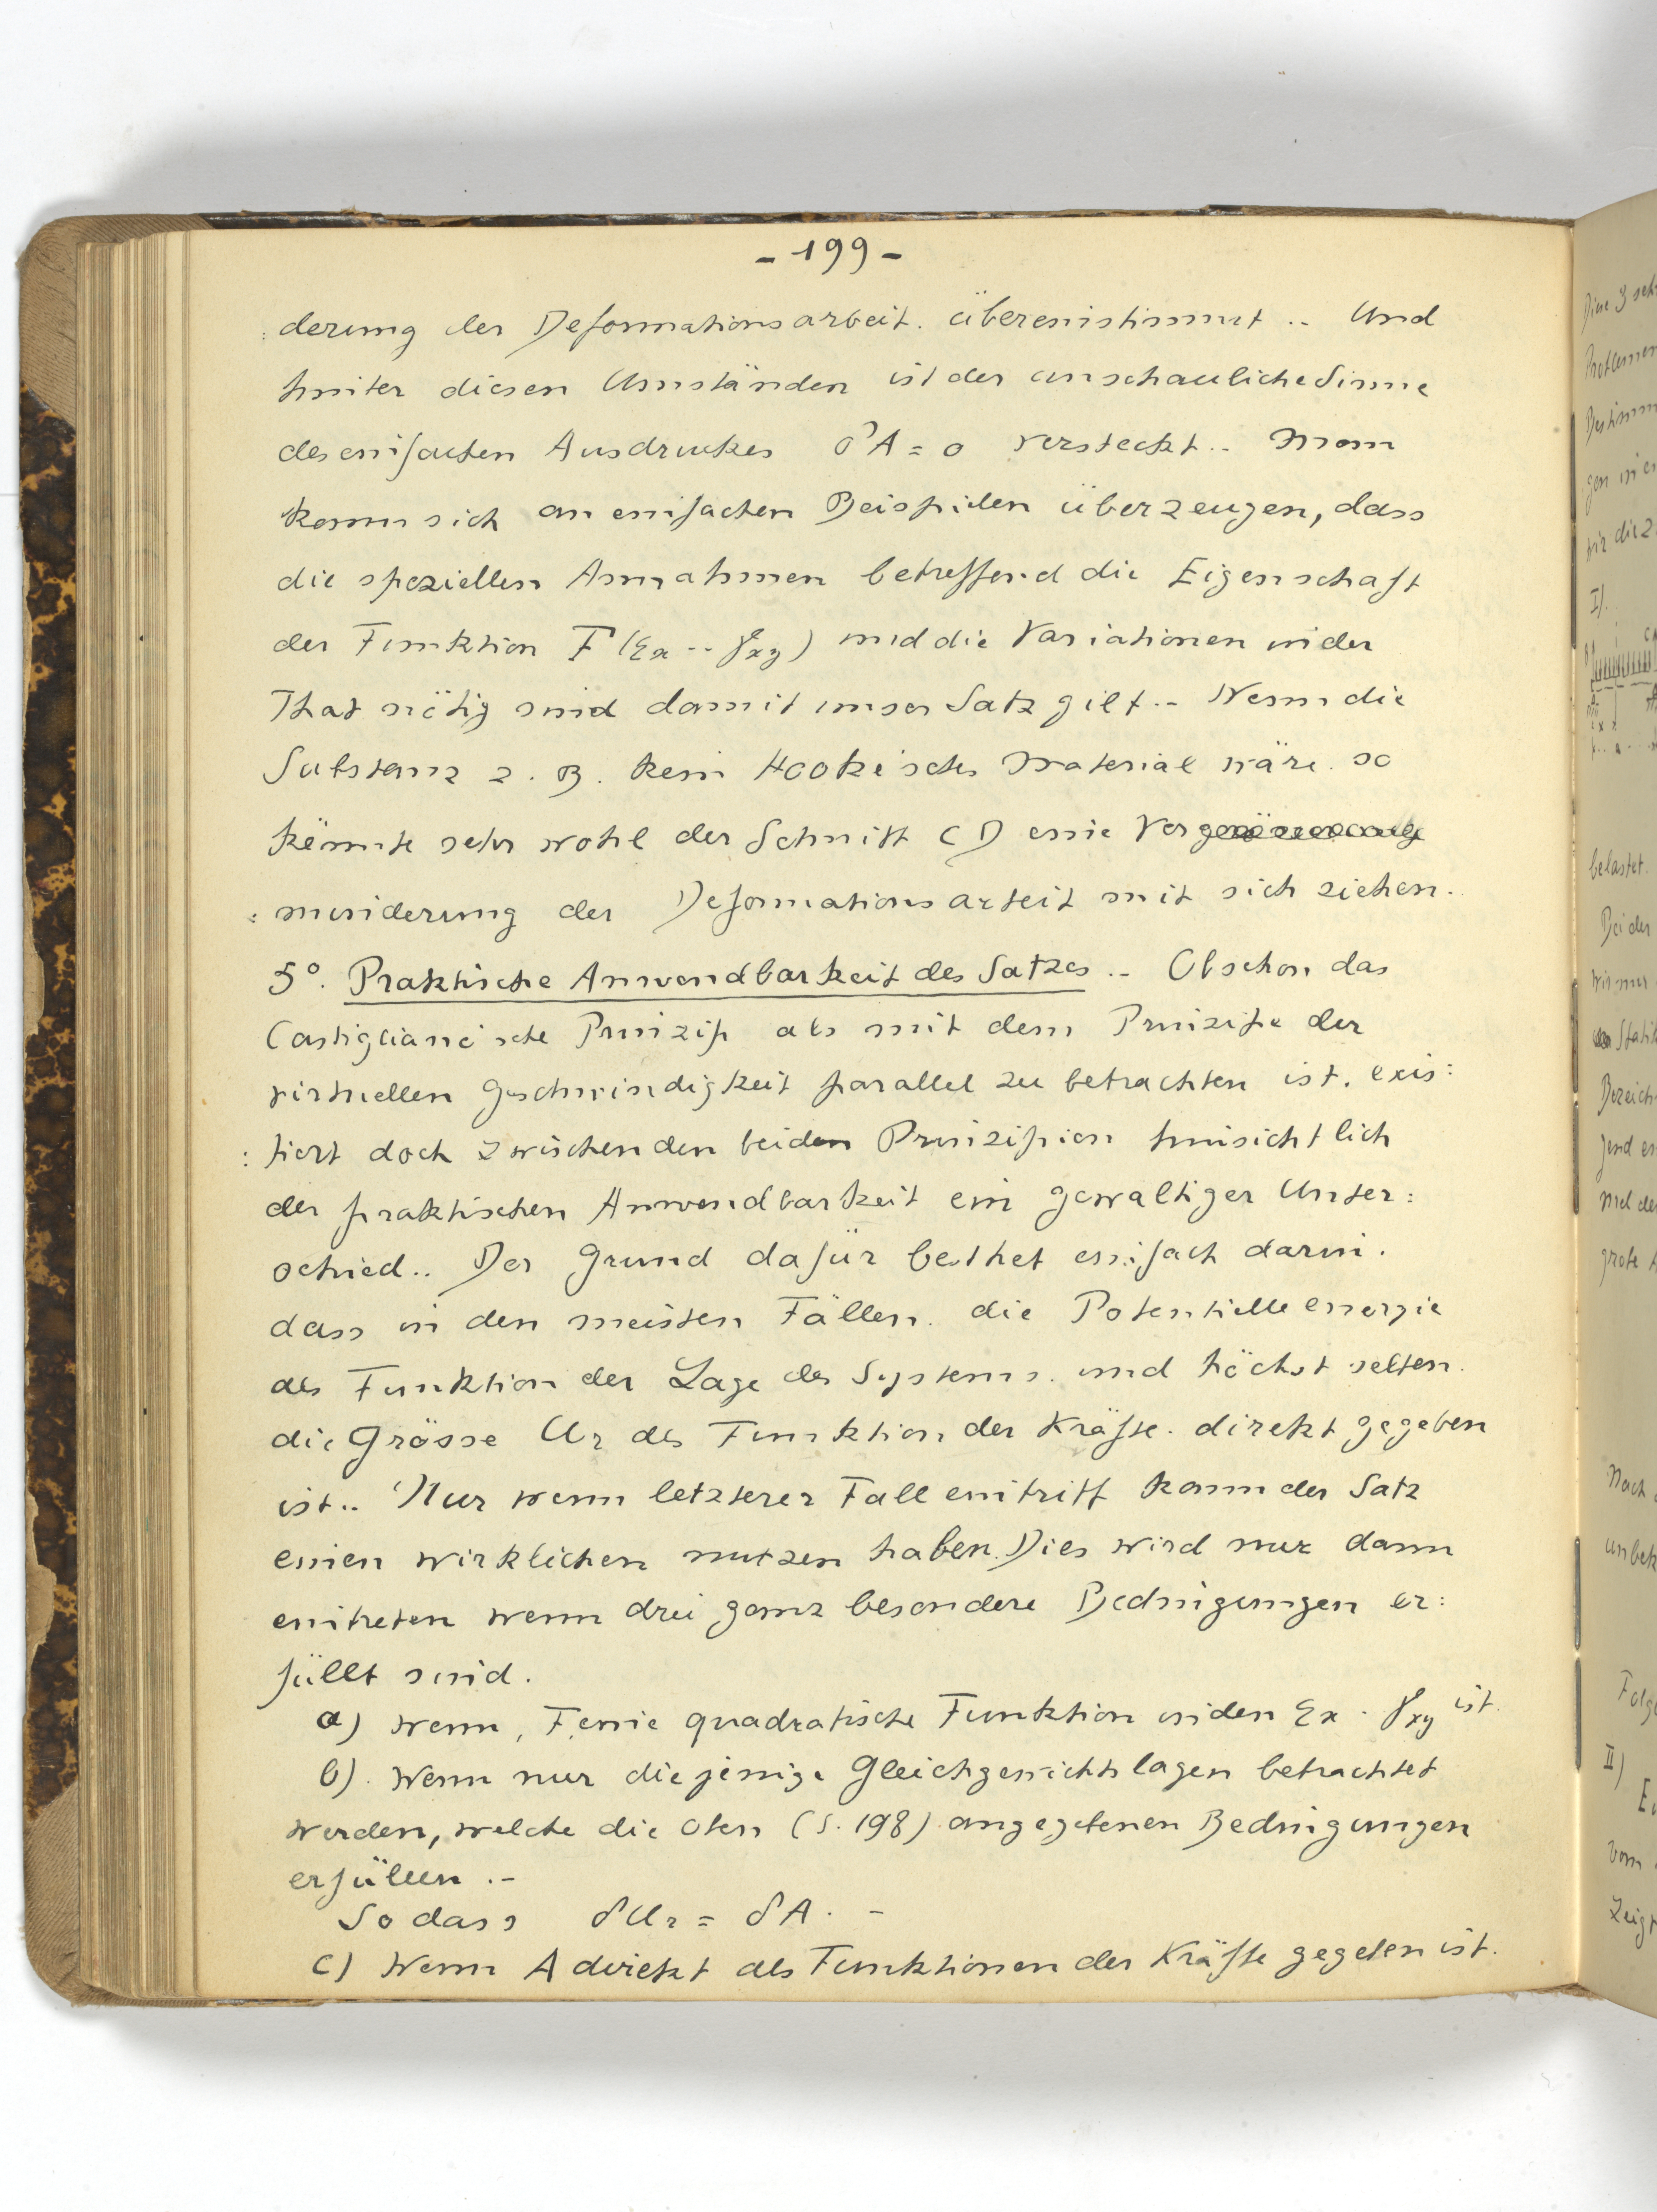 - 199 -
: derung der Deformationsarbeit. übereinstimmt .. Und
hinter diesen Umständen ist der anschauliche Sinne
des einfachen Ausdruckes δA = 0 versteckt .. Man
kann sich an einfachen Beispielen überzeugen, dass
die speziellen Annahmen betreffend die Eigenschaft
der Funktion F (εx -- γxy) und die Variationen in der
That nötig sind damit unser Satz gilt .- Wenn die
Substanz z. B. kein Hooke'sches Material wäre. so
könnte sehr wohl der Schnitt CD eine Ver
: minderung der Deformationsarbeit mit sich ziehen.
5°. Praktische Anwendbarkeit des Satzes .- Obschon das
Castigliano'sche Prinzip als mit dem Prinzipe der
virtuellen Geschwindigkeit parallel zu betrachten ist. exis:
: tiert doch zwischen den beiden Prinzipien hinsichtlich
der praktischen Anwendbarkeit ein gewaltiger Unter:
schied .. Der Grund dafür besthet einfach darin.
dass in den meisten Fällen. die Potentielle energie
als Funktion der Lage des Systems. und höchst selten.
die Grösse Ur als Funktion der Kräfte. direkt gegeben
ist .. Nur wenn letzterer Fall eintritt kann der Satz
einen wirklichen nutzen haben. Dies wird nur dann
eintreten wenn drei ganz besondere Bedingungen er:
füllt sind.
a) wenn, F eine quadratische Funktion in den εx . γxy ist.
b). Wenn nur diejenige Gleichgewichtslagen betrachtet
werden, welche die oben (S. 198) angegebenen Bedingungen
erfüllen .-
So dass δUr = δA. -
c) Wenn A direkt als Funktionen der Kräfte gegeben ist.